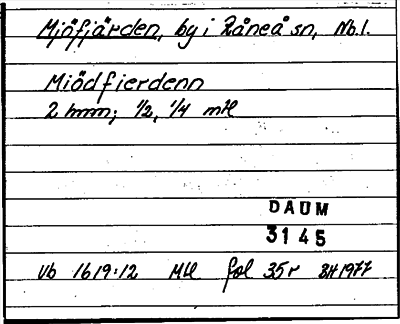 Mjöfjärden, by i Råneå sn, Nb.l.
Miödfierdenn
2 hmn; 1/2, 1/4 mtl
DAUM
3145
Vb 1619:12 Mtl fol 35r BH 1977